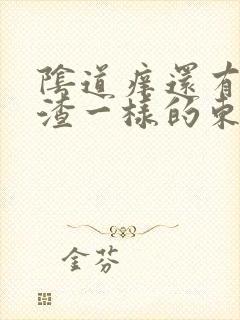 陰道癢還有
渣一樣的東
金芬